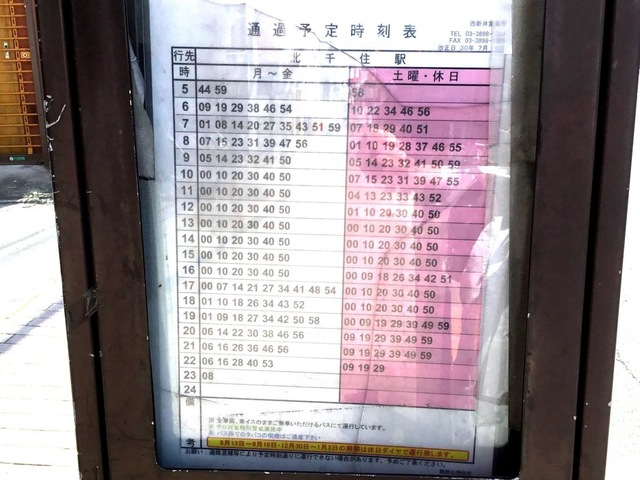 通過予定時刻表
西新井営業所
TEL 03-3898-
FAX 03-3898-
改正日 30年 7月
行先 北千住駅
時 月～金 土曜・休日
5 44 59 56
6 09 19 29 38 46 54 10 22 34 46 56
7 01 08 14 20 27 35 43 51 59 07 18 29 40 51
8 07 15 23 31 39 47 56 01 10 19 28 37 46 55
9 05 14 23 32 41 50 05 14 23 32 41 50 59
10 00 10 20 30 40 50 07 15 23 31 39 47 55
11 00 10 20 30 40 50 04 13 23 33 43 52
12 00 10 20 30 40 50 01 10 20 30 40 50
13 00 10 20 30 40 50 00 10 20 30 40 50
14 00 10 20 30 40 50 00 10 20 30 40 50
15 00 10 20 30 40 50 00 10 20 30 40 50
16 00 10 20 30 40 50 00 09 18 26 34 42 51
17 00 07 14 21 27 34 41 48 54 00 10 20 30 40 50
18 01 10 18 26 34 43 52 00 10 20 30 40 50
19 01 09 18 27 34 42 50 58 00 09 19 29 39 49 59
20 06 14 22 30 38 46 56 09 19 29 39 49 59
21 06 16 26 36 46 56 09 19 29 39 49 59
22 06 16 28 40 53 09 19 29
23 08
24
備考
※ 全車両、車イスのままご乗車いただけるバスにて運行しています。
※ バス停でのタバコの喫煙はご遠慮下さい
8月13日～8月16日・12月30日～1月3日の期間は休日ダイヤで運行致します。
お願い：道路混雑等により予定時刻通りに運行できない場合があります。予めご了承ください。